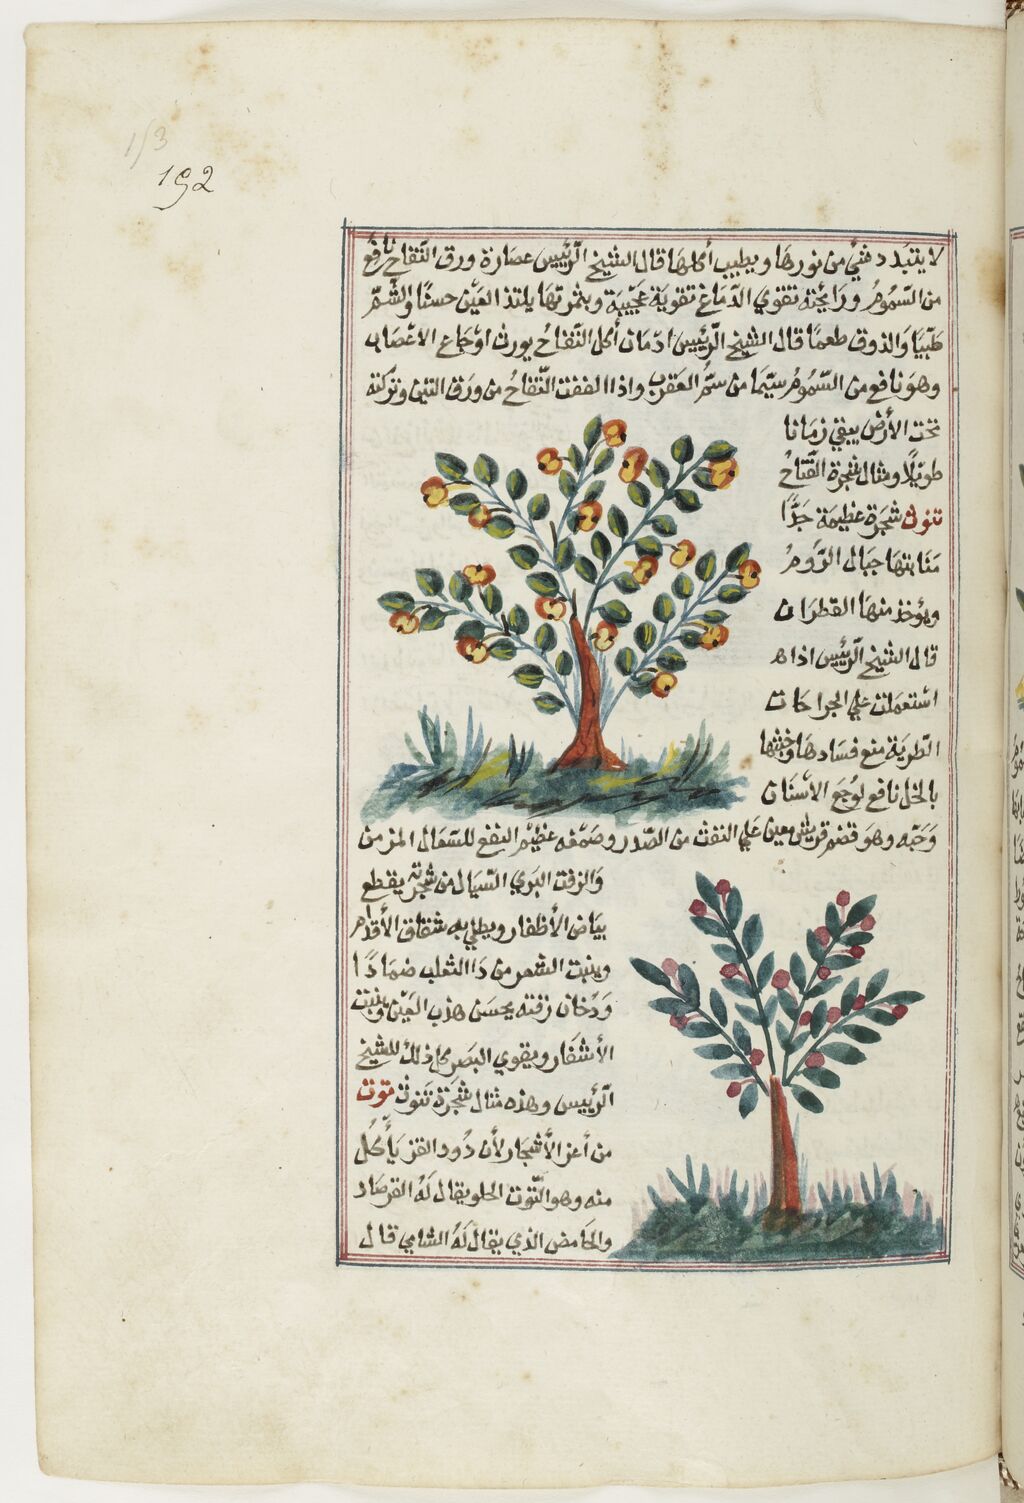 153
192
لا يتبدد شئ من نورها ويطيب أكلها قال الشيخ الرّئيس عصارة ورق التّفاح نافع
من السّموم ورائحته تقوي الدّماغ تقوية عجيبة وبثمرتها يلتذ العين حسنًا والشّمّ
طيبًا والذوق طعمًا قال الشيخ الرّئيس ادمان أكل التّفاح يورث اوجاع الاعصاب
وهو نافع من السّموم سيّما من سمّ العقرب واذا الففت التّفاح من ورق التين وتركته
تحت الأرض يبقي زمانا
طويلًا ومثال شجرة التّفاح
تنوب شجرة عظيمة جدًّا
منابتها جبال الرّوم
ويؤخذ منها القطران
قال الشيخ الرّئيس اذا
استعملت علي الجراحات
الطّرية منع فسادها
بالخل نافع لوجع الأسنان
وحبّه وهو قضم قريش معين علي النفث من الصّدر وصمغه عظيم النفع للسّعال المزمن
والزفت البري السّيال من شجرته يقطع
بياض الأظفار ويطلي به شقاق الأقدام
وينبت الشعر من داالثعلب ضمادًا
ودخان زفته يحسن هذب العين وينبت
الأشفار ويقوي البصر كل ذلك للشيخ
الرّئيس وهذه مثال شجرة تنوب توت
من أعز الأشجار لأن دود القز يأكُل
منه وهو التّوت الحلو يقال لهُ الفرصاد
والحامض الذي يقال لهُ الشامي قال